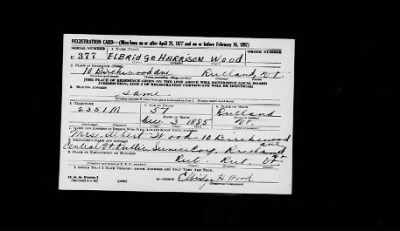 REGISTRATION CARD—(Men born on or after April 28, 1877 and on or before February 16, 1897)
SERIAL NUMBER 1. NAME (Print) ORDER NUMBER
U 377 ELBRIDGE HARRISON WOOD
2. PLACE OF RESIDENCE (Print)
10 Birchwood ave Rutland, Vt.
[THE PLACE OF RESIDENCE GIVEN ON THE LINE ABOVE WILL DETERMINE LOCAL BOARD
JURISDICTION; LINE 2 OF REGISTRATION CERTIFICATE WILL BE IDENTICAL]
3. MAILING ADDRESS
Same
4. TELEPHONE 5. AGE IN YEARS 6. PLACE OF BIRTH
2351M 57 Rutland
DATE OF BIRTH
Dec. 3 1885 Vt
7. NAME AND ADDRESS OF PERSON WHO WILL ALWAYS KNOW YOUR ADDRESS
Mrs. Albert Wood 10 Birchwood ave
8. EMPLOYER'S NAME AND ADDRESS
Central Vt. Public Service Corp. Rutland
9. PLACE OF EMPLOYMENT OR BUSINESS
Rut. Rut. Vt
I AFFIRM THAT I HAVE VERIFIED ABOVE ANSWERS AND THAT THEY ARE TRUE.
D. S. S. Form 1
Elbridge H. Wood
(Registrant's signature)